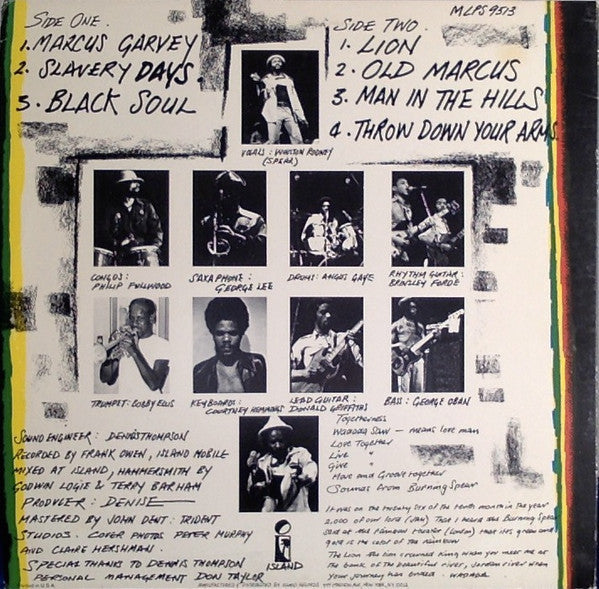 SIDE ONE.
1. MARCUS GARVEY
2. SLAVERY DAYS.
3. BLACK SOUL
MLPS 9513
SIDE TWO.
1. LION
2. OLD MARCUS
3. MAN IN THE HILLS
4. THROW DOWN YOUR ARMS
VOCALS: WINSTON RODNEY
(SPEAR)
CONGOS:
PHILIP FULLWOOD
SAXAPHONE:
GEORGE LEE
DRUMS: ANGUS GAYE
RHYTHM GUITAR:
BRINZLEY FORDE
TRUMPET: BOBBY ELLIS
KEYBOARDS:
COURTNEY HEMMINGS
LEAD GUITAR:
DONALD GRIFFITHS
BASS: GEORGE OBAN
SOUND ENGINEER: DENNIS THOMPSON
RECORDED BY FRANK OWEN, ISLAND MOBILE
MIXED AT ISLAND, HAMMERSMITH BY
GODWIN LOGIE & TERRY BARHAM
PRODUCER: DENISE
MASTERED BY JOHN DENT: TRIDENT
STUDIOS. COVER PHOTOS PETER MURPHY
AND CLAIRE HERSHMAN.
SPECIAL THANKS TO DENNIS THOMPSON
PERSONAL MANAGEMENT DON TAYLOR
ISLAND
Togetherness
Wadada Saw - means love man
Love Together
Live "
Give "
Move and Groove together
Sounds from Burning Spear
It was on the twenty six of the tenth month in the year
2,000 of our lord (JAH) that I heard the Burning Spear
said at the Rainbow theater (London) that its green and
gold is the color of the rainbow
The Lion the lion crowned king when you meet me at
the bank of the beautiful river, Jordan river when
your journey has ended. WADADA
MANUFACTURED & DISTRIBUTED BY ISLAND RECORDS NEW YORK, NY
MADE IN U.S.A.